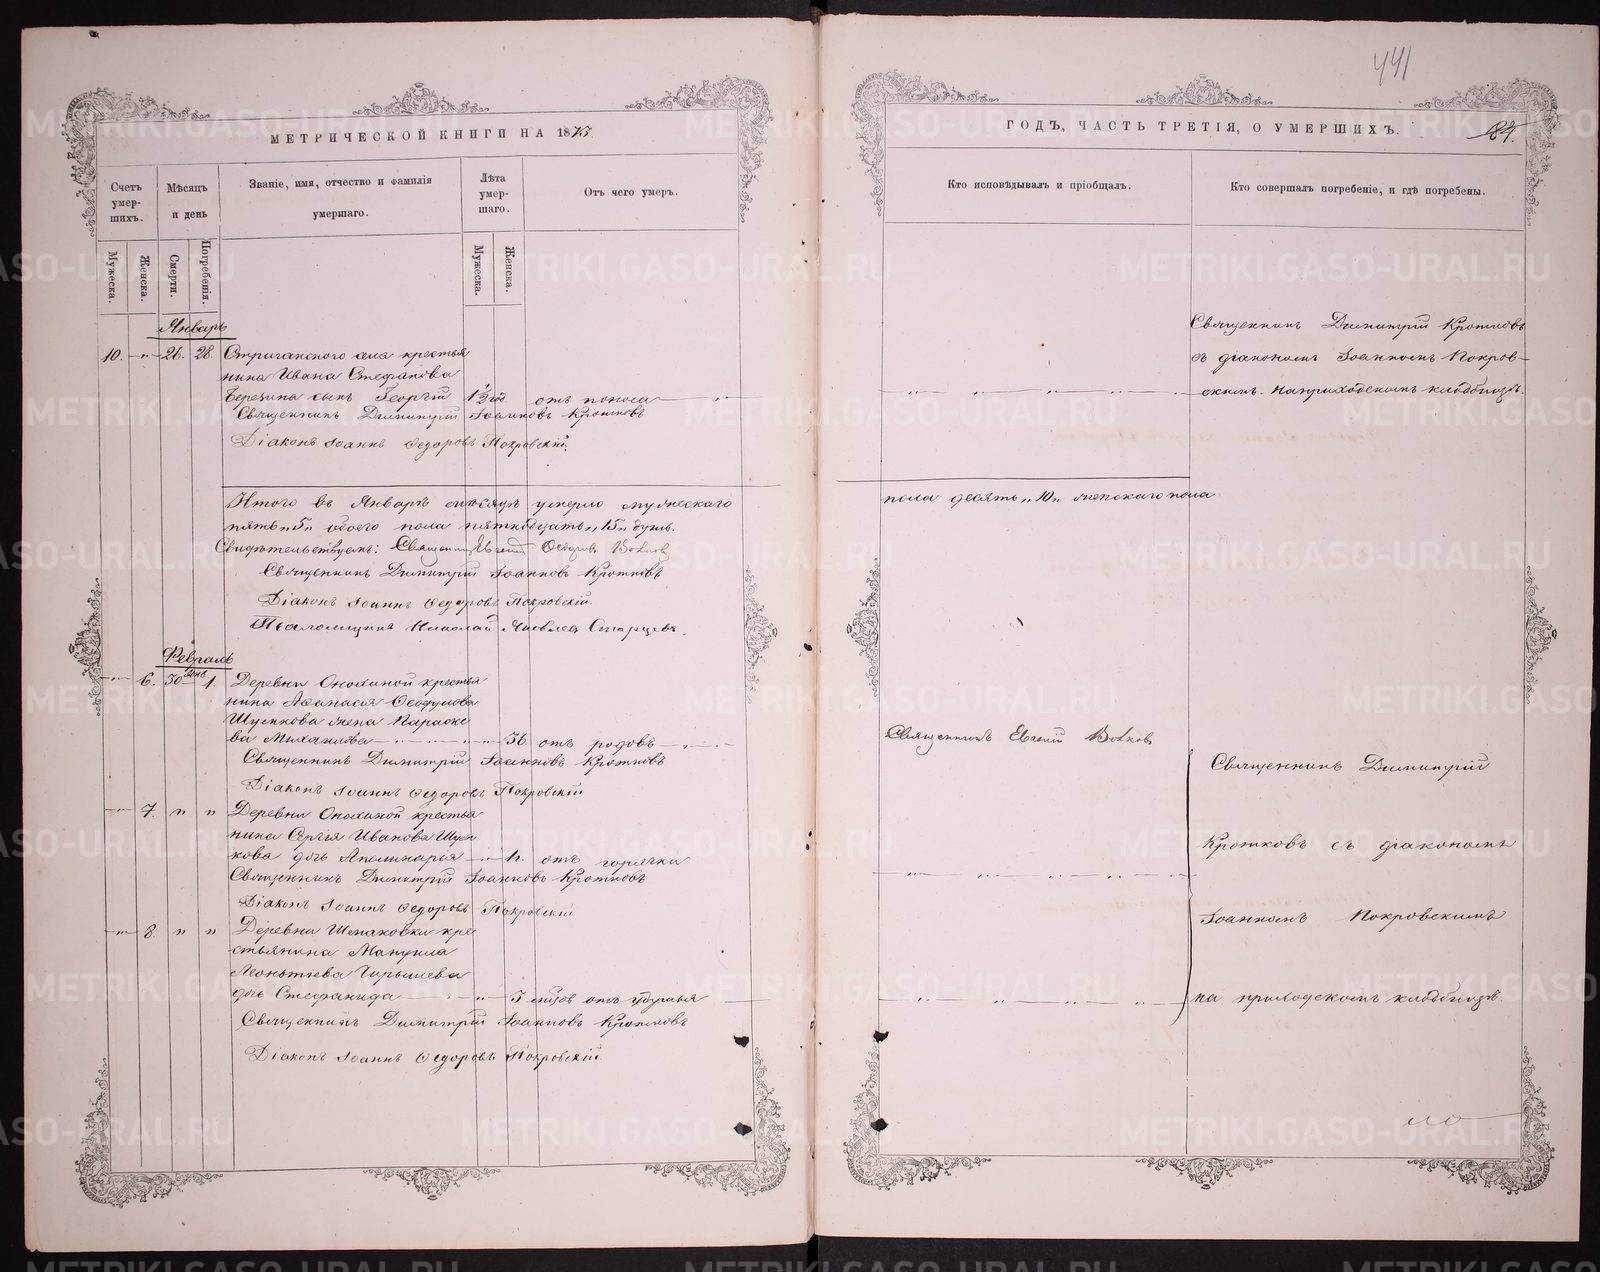 441
МЕТРИЧЕСКОЙ КНИГИ НА 1875
Счетъ умер-шихъ.
Мѣсяцъ и день
Званіе, имя, отчество и фамилія умершаго.
Лѣта умер-шаго.
Отъ чего умеръ.
Мужеска.
Женска.
Смерти.
Погребенія.
Мужеска.
Женска.
Январь
10. — „ — 26. 28. Стриганского села крестья
нина Ивана Стефанова
Березина сынъ Георгій 1½ год отъ поноса
Священникъ Димитрій Іоанновъ Кротковъ
Діаконъ Іоаннъ Ѳедоровъ Покровскій.
Итого въ Январѣ мѣсяцѣ умерло мужескаго
пять „5„ обоего пола пятнадцать „15„ душъ.
Свидѣтельствуемъ: Священникъ Евгеній Волков
Священникъ Димитрій Іоанновъ Кротковъ
Діаконъ Іоаннъ Ѳедоровъ Покровскій.
Псаломщикъ Николай Яковлев Старцевъ.
Февраль
— „ — 6. 30 Янв 1. Деревни Онохиной крестья
нина Аѳанасія
жена Параске
ва Михайлова — „ — 36 отъ родовъ
Священникъ Димитрій Іоанновъ Кротковъ
Діаконъ Іоаннъ Ѳедоровъ Покровскій
— „ — 7. „ „ Деревни Онохиной крестья
нина Сергія Иванова
кова дочь Аполинарія — „ — отъ горячки
Священникъ Димитрій Іоанновъ Кротковъ
Діаконъ Іоаннъ Ѳедоровъ Покровскій
— „ — 8. „ „ Деревни Шмаковки кре
стьянина Мануила
Леонтіева Чирышева
дочь Стефанида — „ — отъ удушья
Священникъ Димитрій Іоанновъ Кротковъ
Діаконъ Іоаннъ Ѳедоровъ Покровскій
ГОДЪ, ЧАСТЬ ТРЕТІЯ, О УМЕРШИХЪ.
84.
Кто исповѣдывалъ и пріобщалъ.
Кто совершалъ погребеніе, и гдѣ погребены.
Священникъ Димитрій Кротковъ
съ діакономъ Іоанномъ Покров-
скимъ на приходскомъ кладбищѣ.
пола десять „10„ женскаго пола
Священникъ Евгеній Волков
Священникъ Димитрій
Кротковъ съ діакономъ
Іоанномъ Покровскимъ
на приходскомъ кладбищѣ.
METRIKI.GASO-URAL.RU